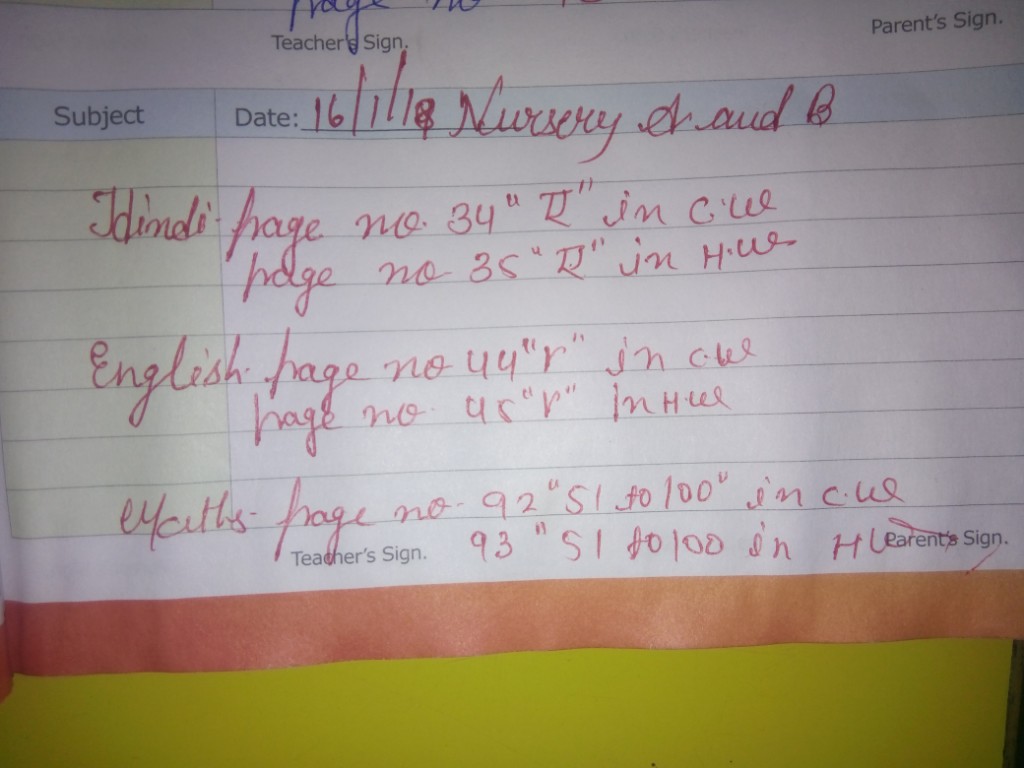 page no
Teacher's Sign. Parent's Sign.
Subject Date: 16/1/18 Nursery A and B
Hindi page no. 34 " य" in C.W
page no 35 " य" in H.W
English. page no 44 "r" in C.W
page no. 45 "r" in H.W
Maths- page no- 92 "51 to 100" in C.W
93 "51 to 100 in HW
Teacher's Sign. Parent's Sign.